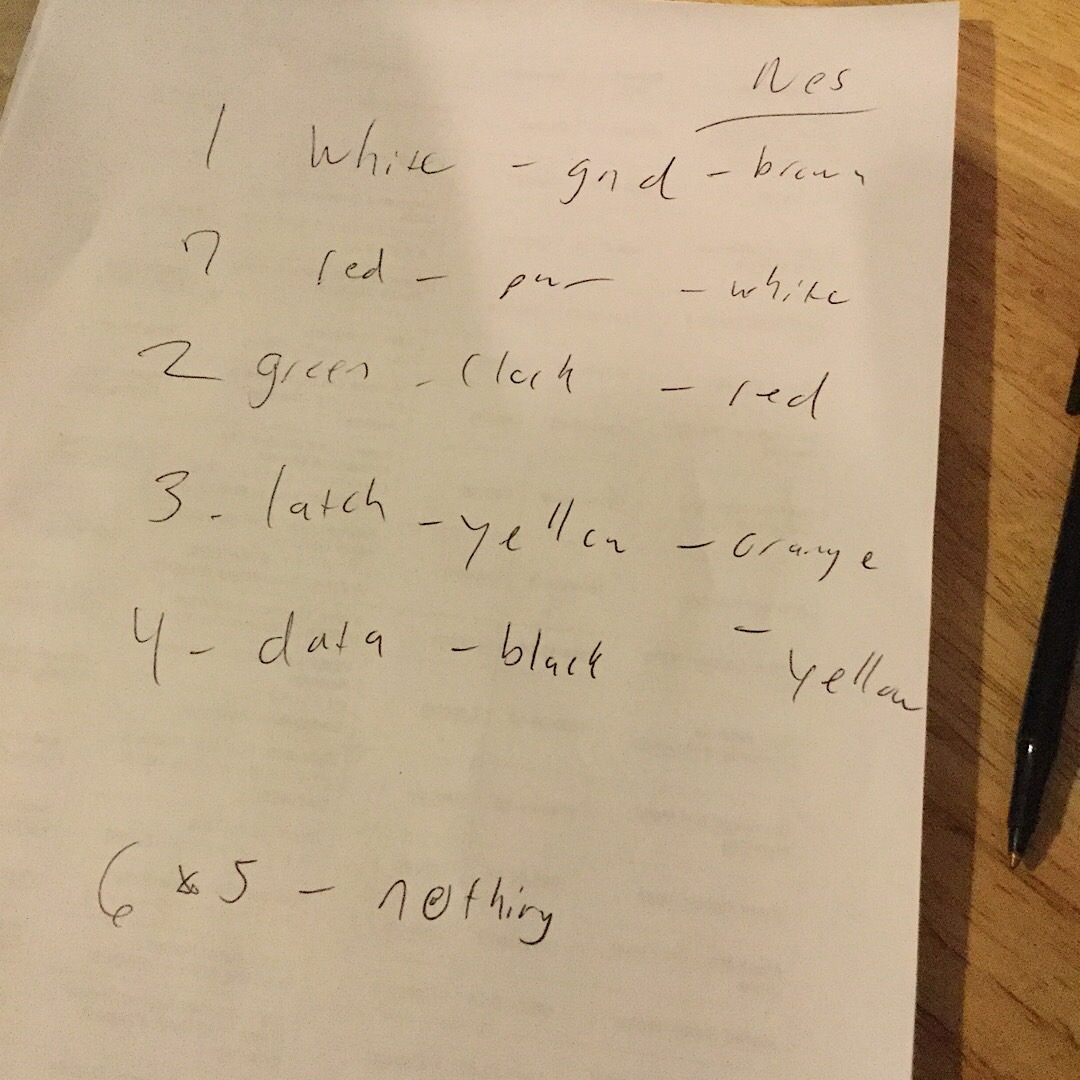 Nes
1 White - gnd - brown
7 red - pwr - white
2 green - Clock - red
3 - latch - yellow - orange
4 - data - black - yellow
6 & 5 - nothing